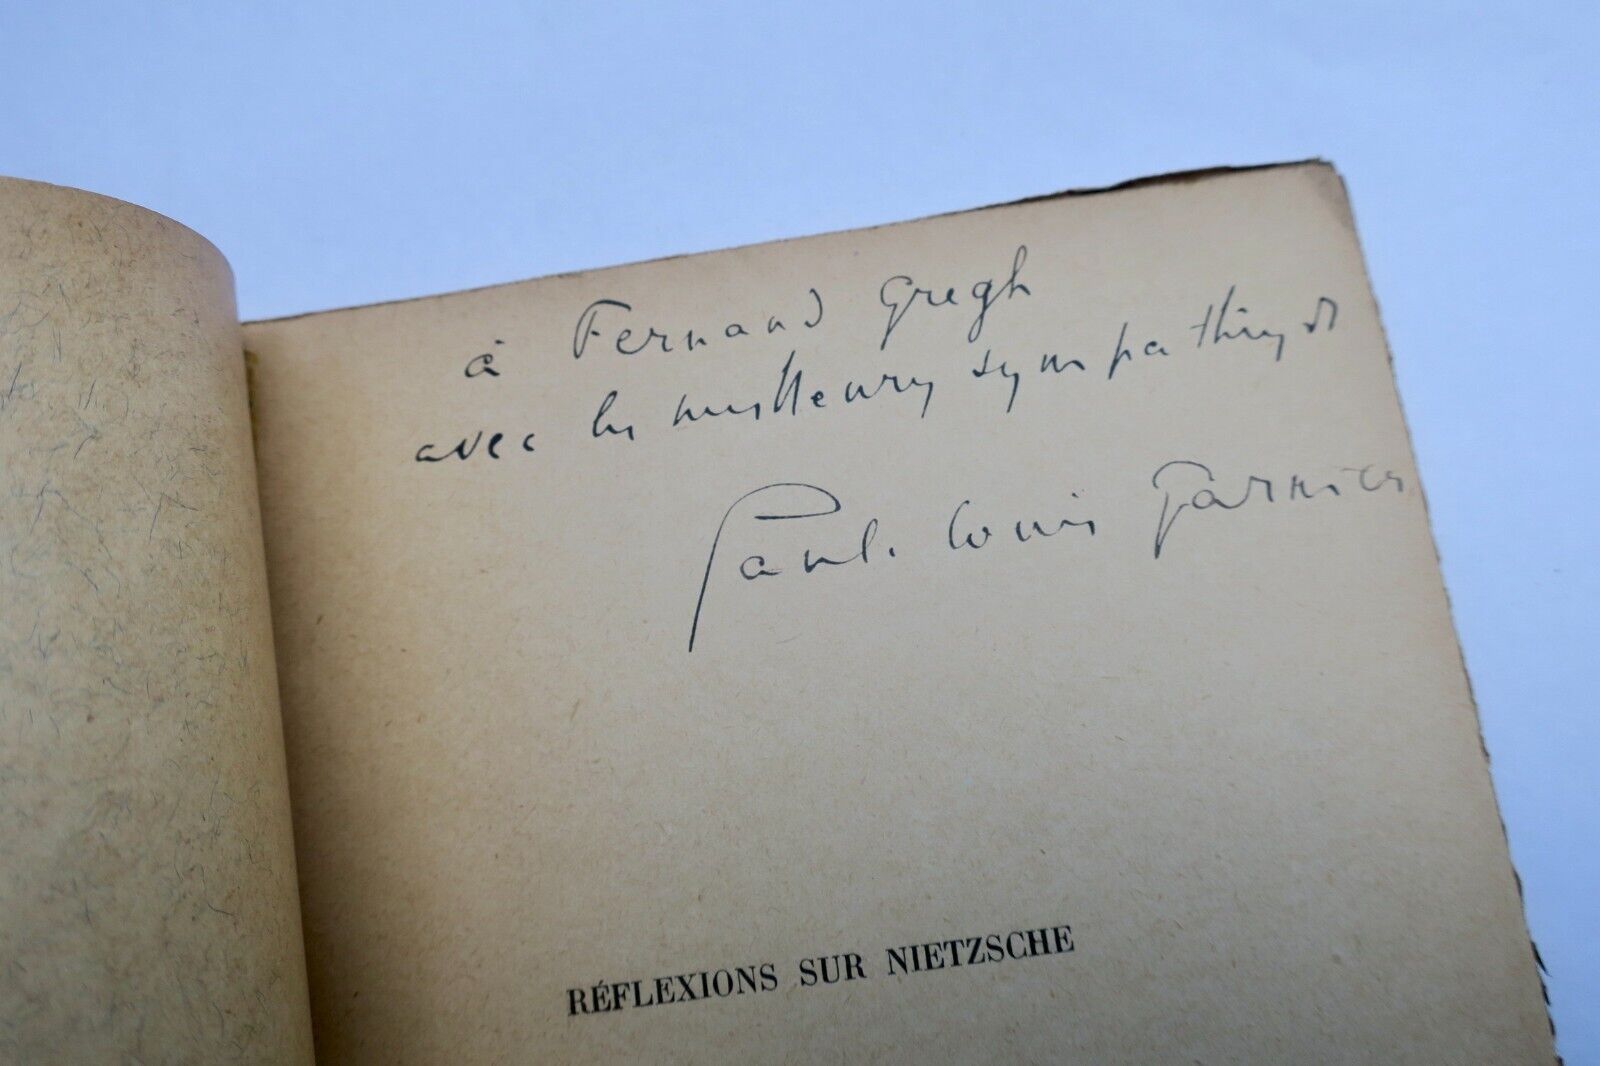 à Fernand Gregh
avec les meilleures sympathies de
Paul-Louis Garnier
RÉFLEXIONS SUR NIETZSCHE